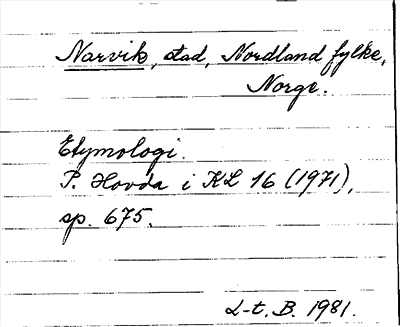 Narvik, stad, Nordland fylke,
Norge.
Etymologi.
P. Hovda i KL 16 (1971),
sp. 675.
L-t. B. 1981.